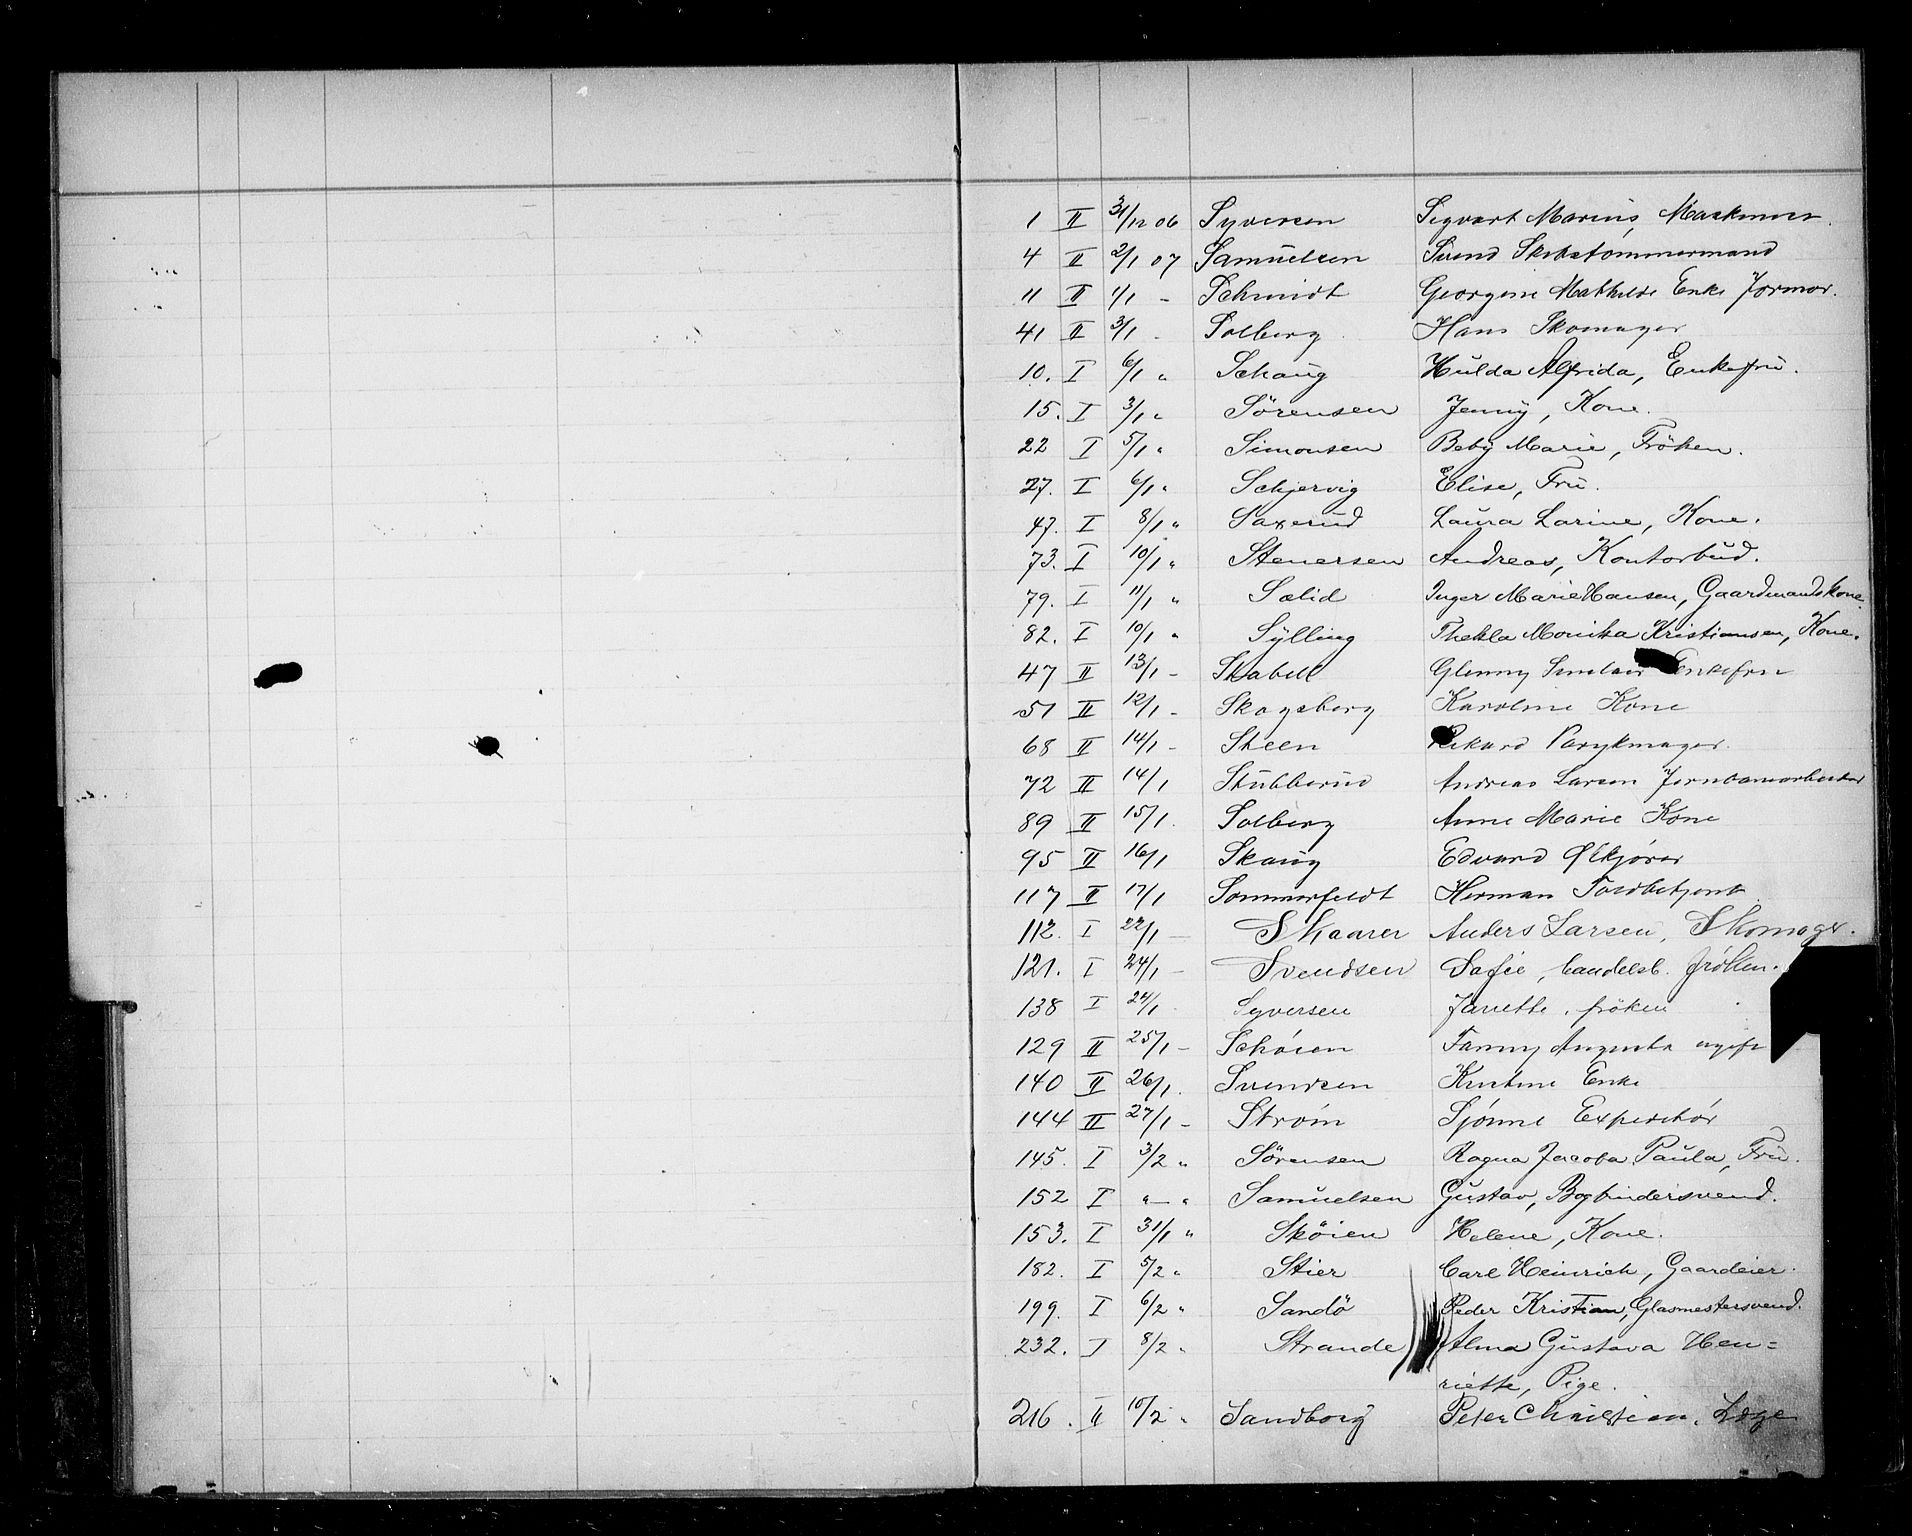 1 II 31/12 06 Syversen Sigvart Marius, Maskinist.
4 II 2/1 07 Samuelsen Svend Skibstømmermand
11 II 1/1 - Schmidt Georgine Mathilde Enke Jormor.
41 II 3/1 - Solberg Hans Skomager
10. I 6/1 " Schaug Hulda Alfrida, Enkefru.
15. I 3/1 " Sörensen Jenny, Kone.
22 I 5/1 " Simonsen Beby Marie, Fröken.
27. I 6/1 " Schjervig Elise, Fru.
47. I 8/1 " Saxerud Laura Larine, Kone.
73. I 10/1 " Stenersen Andreas, Kontorbud.
79. I 11/1 " Sælid Inger Marie Hansen, Gaardmandskone.
82. I 10/1 " Sylling Thekla Monika Kristiansen, Kone.
47 II 13/1 - Stabell Glenny Sinclair Enkefru
51 II 12/1 - Skogsberg Karoline Kone
68 II 14/1 - Steen Rikard Parykmager.
72 II 14/1 Stubberud Andreas Larsen Jernbanearbeider
89 II 15/1. Solberg Anne Marie Kone
95 II 16/1 Skaug Edvard Ølkjører
117 II 17/1 Sommerfeldt Herman Toldbetjent
112. I 22/1 - Skaarer Anders Larsen, Skomager.
121. I 24/1 - Svendsen Sofie, handelsb. frøken.
138 I 24/1 Syversen Janette, fröken
129 II 25/1 - Schöien Fanny Augusta ugift
140 II 26/1. Svendsen Kristine Enke
144 II 27/1 - Strøm Sjønne Expeditør
145. I 3/2 " Sörensen Ragna Jacoba Paula, Fru.
152 I "-" Samuelsen Gustav, Bogbindersvend.
153. I 31/1 " Sköien Helene, Kone.
182. I 5/2 " Stier Carl Heinrich, Gaardeier.
199. I 6/2 " Sandö Peder Kristian, Glasmestersvend.
232. I 8/2 " Strande Alma Gustava Hen=
riette, Pige.
216. II 10/2 " Sandborg Peter Christian, Læge